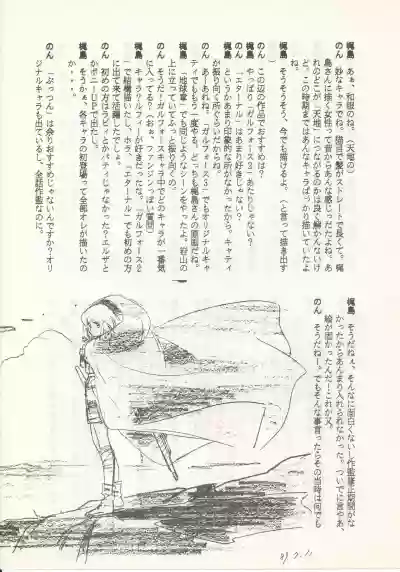 梶島 あぁ、和服のね。（天地の）
のん 妙なキャラでね、猫目で髪がストレートで長くて。梶
島さんに描く女性って昔からあんな感じっだだよね。あ
れのどこが「天地」につながるのかは良く解かんないけ
ど。この時期まではあんなキャラばっかり描いていたよ
ね。
梶島 そうそうそう、今でも描けるよ。（と言って描き出す
のん この辺の作品でおすすめは？
梶島 やっぱり「ガルフォース３」あたりじゃない？
のん 「エターナル」はあまり好きじゃない？
梶島 というかあまり印象的な所がなかったから。キャティ
が振り向く所ぐらいだからね。
のん あーあれね。「ガルフォース３」でもオリジナルキャ
ティでももう一度やる。どっちも梶島さんの原画だね。
梶島 「地球章」でも同じようなシーンをやったよ。岩山の
上に立っていてふっと振り向くの。
のん そうだ！ガルフォースキャラ中でどのキャラが一番気
に入ってる？（おぉ、ファンジンっぽい質問）
梶島 キャラ？ルフィーが好きだったな。「ガルフォース２
で結構描いたけど。ホラ「エターナル」でも初めの方
に出て来て活躍したでしょ。
のん 初めの方はラビィとかパティじゃなかった？エルザと
かポニーＵＰで出たし。
梶島 そうかぁ、各キャラの初登場って全部オレが描いたの
か・・・。
のん 「ぷっつん」は余りおすすめじゃないんですか？オリ
ジナルキャラも出ているし、全話作監なのに。
梶島 そうだねぇ、そんなに面白くないし作監修正期間がな
かったからあんまり入れられなかった。ついでに言やあ、
絵が固かったんだ！これが又。
のん そうだねー。でもそんな事言ったらその当時は何でも